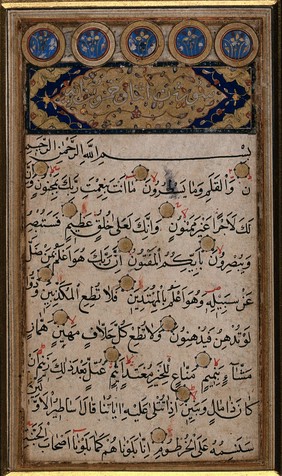 بسم الله الرحمن الرحيم
ن والقلم وما يسطرون ما انت بنعمت ربك بمجنون وان
لك لاجرا غير ممنون وانك لعلى خلق عظيم فستبصر
ويبصرون باييكم المفتون ان ربك هو اعلم بمن ضل
عن سبيله وهو اعلم بالمهتدين فلا تطع المكذبين ودوا
لو تدهن فيدهنون ولا تطع كل حلاف مهين هماز
مشاء بنميم مناع للخير معتد اثيم عتل بعد ذلك زنيم ان
كان ذا مال وبنين اذا تتلى عليه اياتنا قال اساطير الاولين
سنسمه على الخرطوم انا بلوناهم كما بلونا اصحاب الجنة